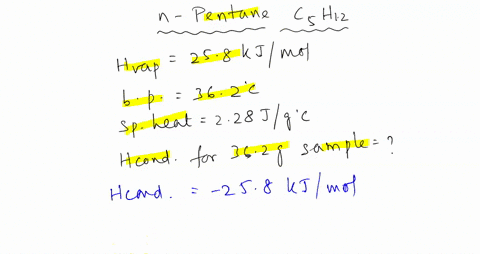 n-Pentane C5H12
Hvap = 25.8 kJ/mol
b.p. = 36.2°C
Sp. heat = 2.28 J/g°C
Hcond. for 36.2g sample = ?
Hcond. = -25.8 kJ/mol